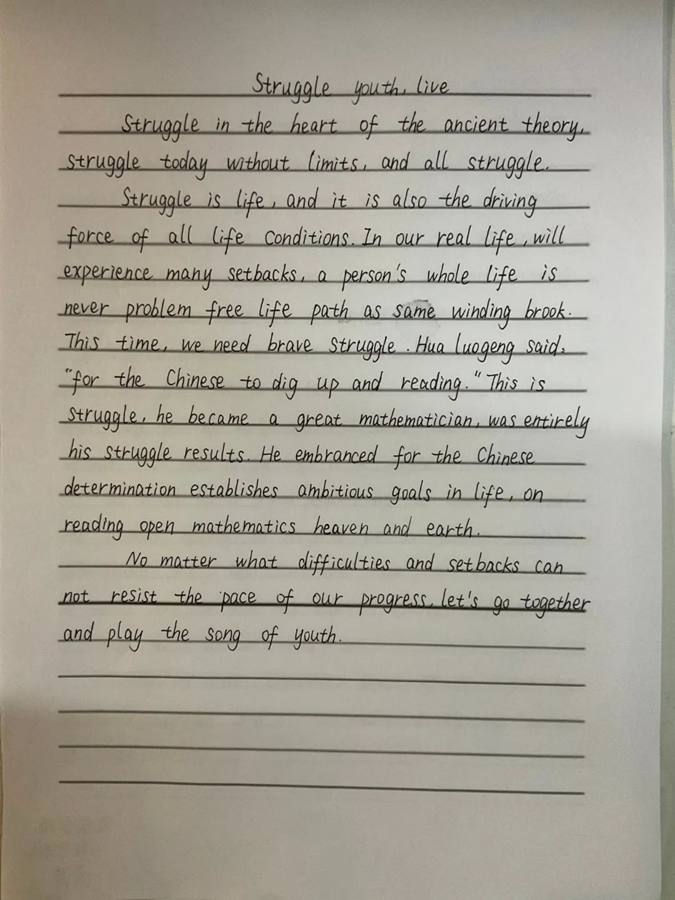 Struggle youth, live
Struggle in the heart of the ancient theory,
struggle today without limits, and all struggle.
Struggle is life, and it is also the driving
force of all life conditions. In our real life, will
experience many setbacks, a person's whole life is
never problem free life path as same winding brook.
This time, we need brave struggle. Hua luogeng said,
"for the Chinese to dig up and reading." This is
struggle, he became a great mathematician, was entirely
his struggle results. He embranced for the Chinese
determination establishes ambitious goals in life, on
reading open mathematics heaven and earth.
No matter what difficulties and setbacks can
not resist the pace of our progress, let's go together
and play the song of youth.